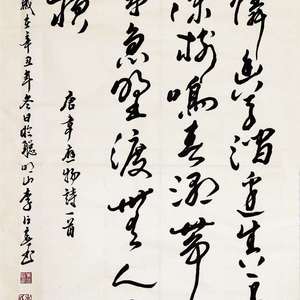 憐幽草澗邊生
深樹鳴春潮帶
來急野渡無人
橫
唐韋應物詩一首
歲在辛丑年冬日於聽山李